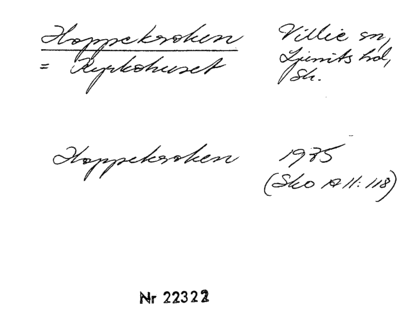 Hoppekroken Villie sn,
= Kyrkohuset Ljunits hd,
Sk.
Hoppekroken 1935
(Sko A11:118)
Nr 22322